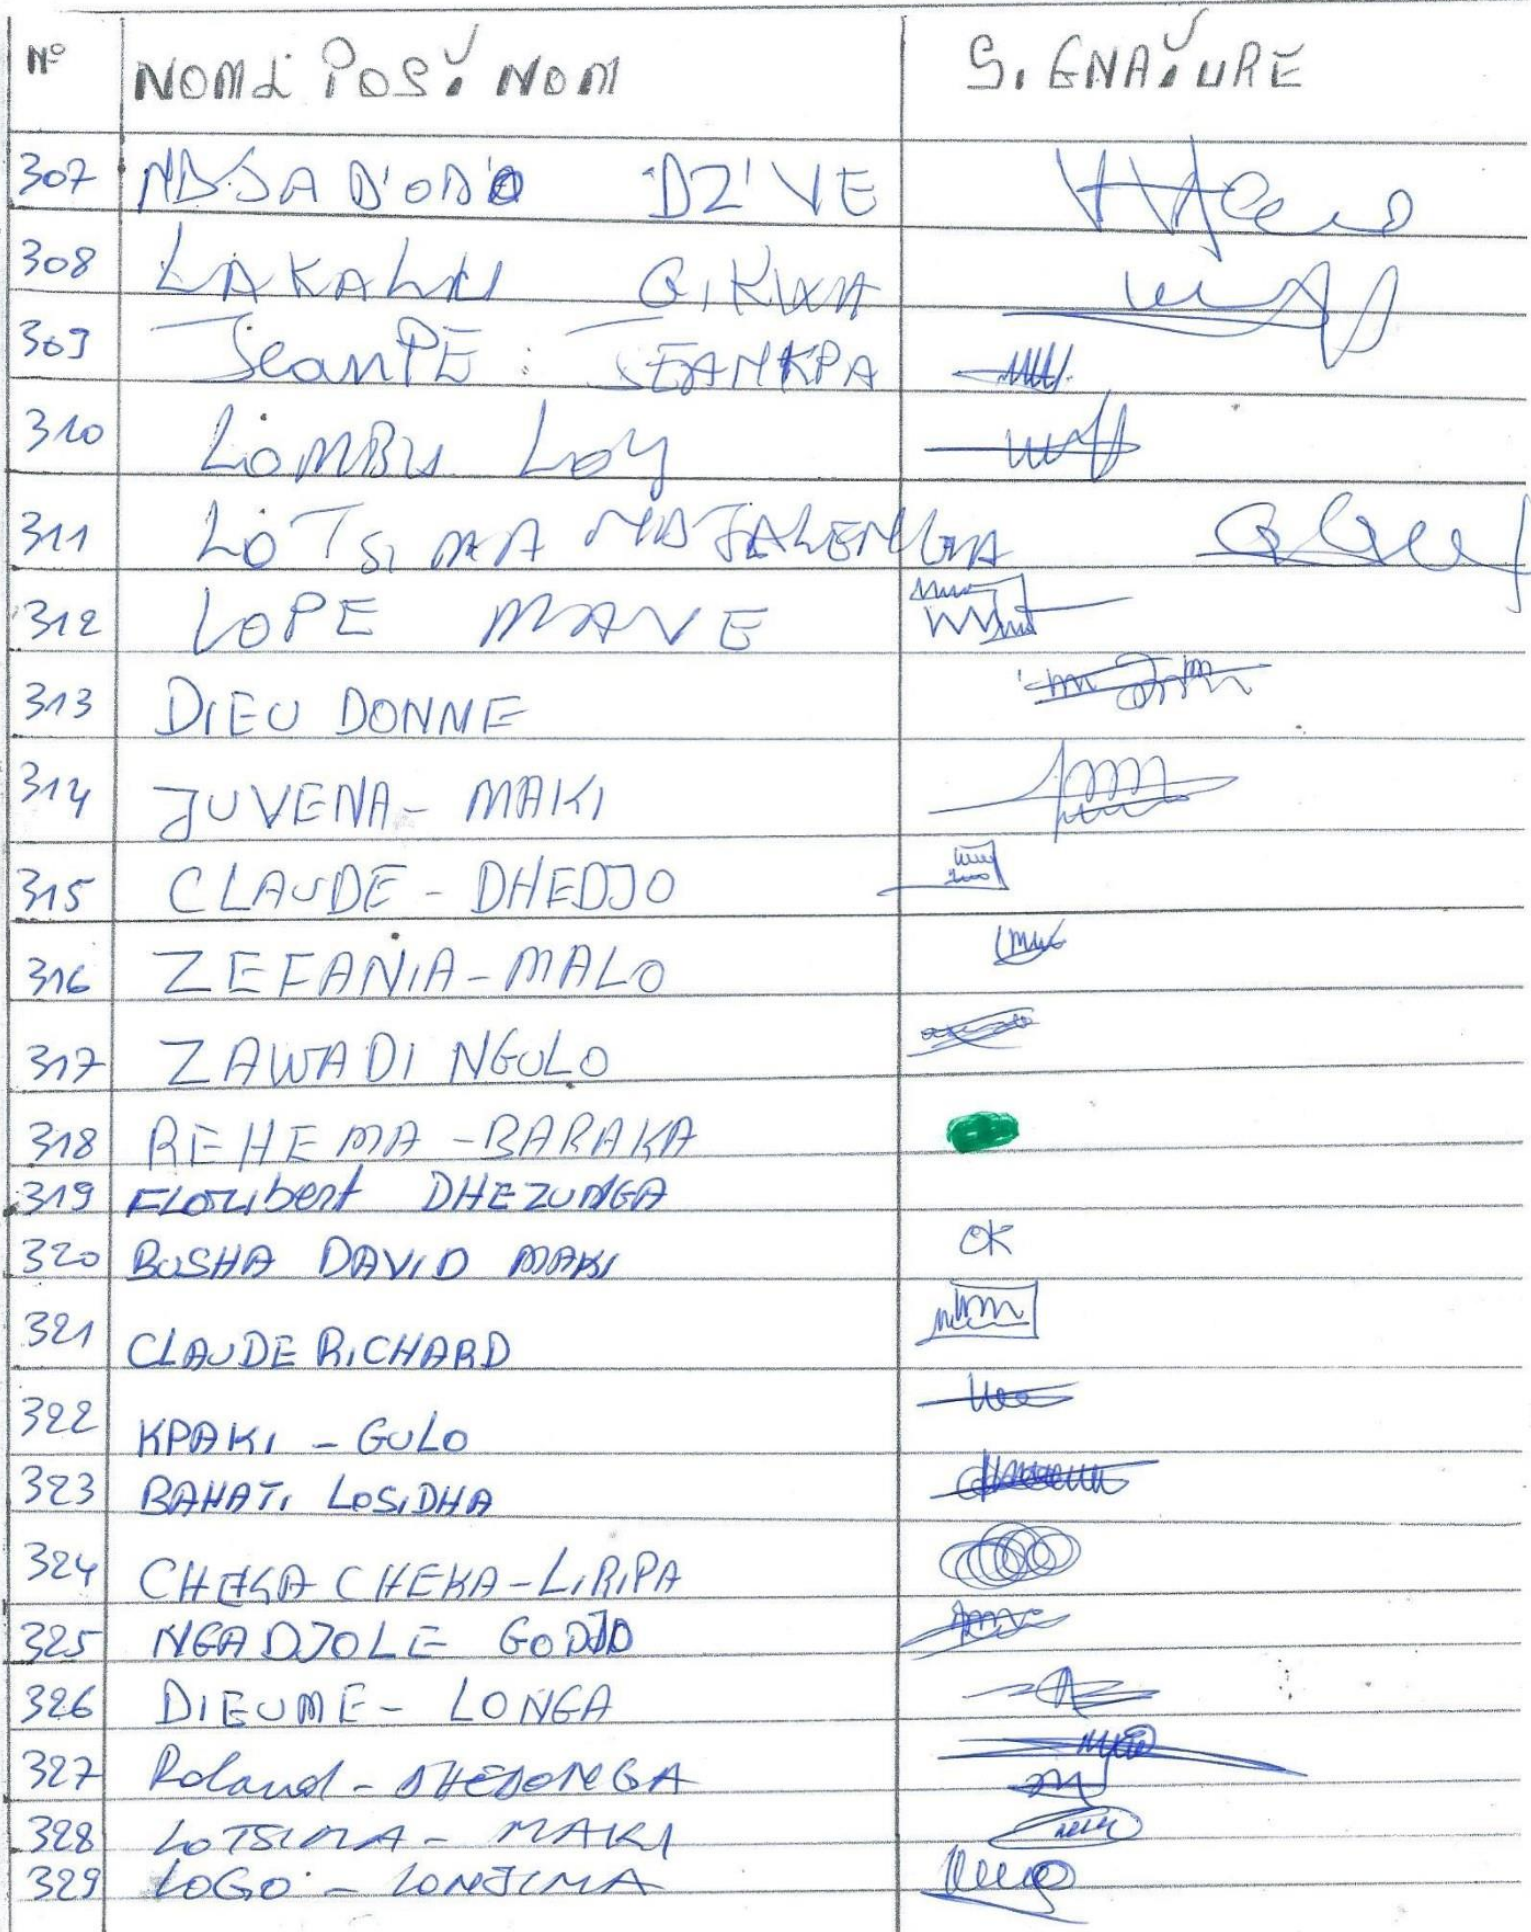 N° NOM & POST NOM SIGNATURE
307 NDJADODO DZ'VE
308 LAKALU GIKWA
309 JeanPE : JEANKPA
310 LOMBU LOY
311 LOTSIMA NDJALENGA
312 LOPE MAVE
313 DIEU DONNE
314 JUVENA - MAKI
315 CLAUDE - DHEDJO
316 ZEFANIA - MALO
317 ZAWADI NGULO
318 REHEMA - BARAKA
319 FLORIbert DHEZUNGA
320 BUSHA DAVID MAKI OK
321 CLAUDE RICHARD
322 KPAKI - GULO
323 BAHATI LOSIDHA
324 CHEKA CHEKA - LIRIPA
325 NGADJOLE GODJO
326 DIEUME - LONGA
327 Roland - DHEDONGA
328 LOTSIMA - MAKI
329 LOGO - LONJIMA